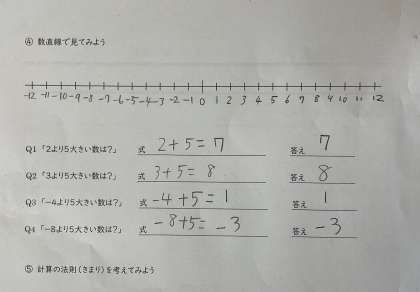 ④ 数直線で見てみよう
-12 -11 -10 -9 -8 -7 -6 -5 -4 -3 -2 -1 0 1 2 3 4 5 6 7 8 9 10 11 12
Q1「2より5大きい数は?」 式 2+5=7 答え 7
Q2「3より5大きい数は?」 式 3+5=8 答え 8
Q3「-4より5大きい数は?」 式 -4+5=1 答え 1
Q4「-8より5大きい数は?」 式 -8+5=-3 答え -3
⑤ 計算の法則(きまり)を考えてみよう